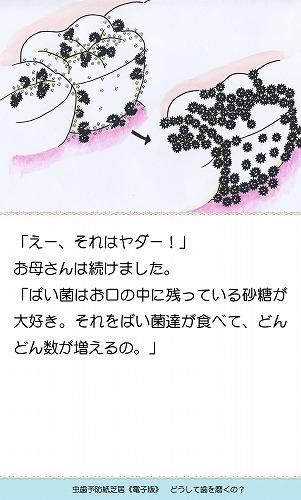 「えー、それはヤダー！」
お母さんは続けました。
「ばい菌はお口の中に残っている砂糖が
大好き。それをばい菌達が食べて、どん
どん数が増えるの。」
虫歯予防紙芝居《電子版》　どうして歯を磨くの？